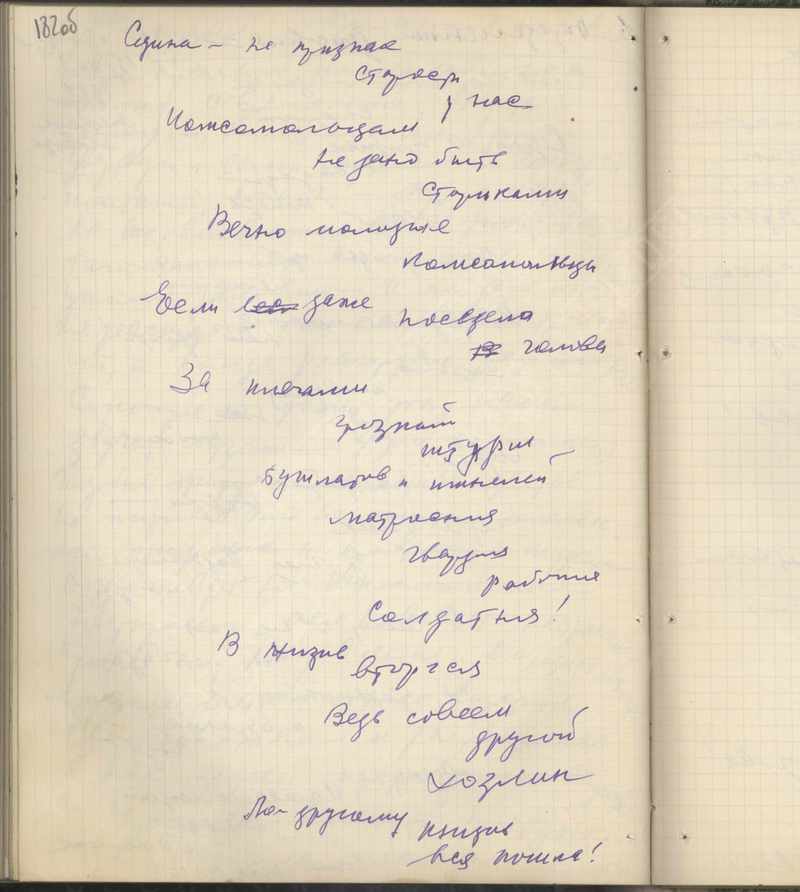 182об
Седина – не признак
старости
у нас
Комсомольцам
не дано быть
стариками
Вечно молодые
комсомольцы
Если даже поседела
голова
За плечами
грозный
штурм –
Бушлатов и шинелей
матросня
гвардия
рабочия
Солдатня!
В жизнь
вторгся
Ведь совсем
другой
хозяин
По-другому
жизнь
вся пошла!